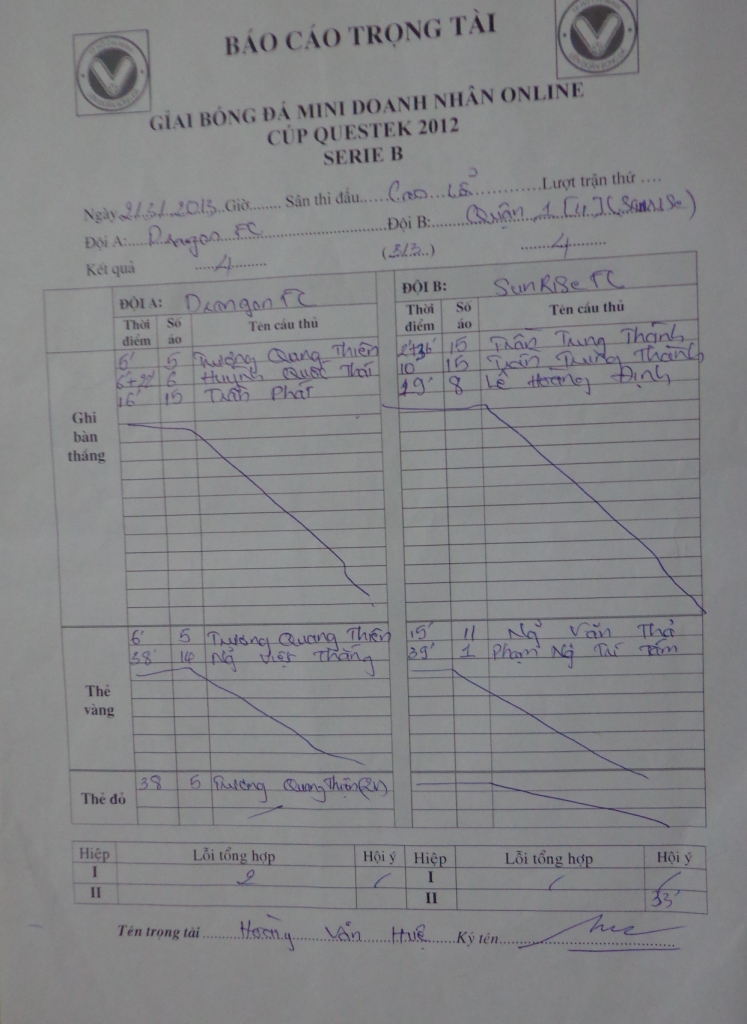 BÁO CÁO TRỌNG TÀI
GIẢI BÓNG ĐÁ MINI DOANH NHÂN ONLINE
CÚP QUESTEK 2012
SERIE B
Ngày 2/3/.2013. Giờ........ Sân thi đấu..... Cao Lỗ ............Lượt trận thứ ....
Đội A:... Dzangon FC ...............Đội B:...... Quận 1 [4] (SunRise)
Kết quả .....4......... (3/3..) .....4........
ĐỘI A: Dzangon FC ĐỘI B: SunRise FC
Thời điểm Số áo Tên cầu thủ Thời điểm Số áo Tên cầu thủ
Ghi bàn thắng
5 Trương Quang Thiện 15 Trần Trung Thành
6 Huỳnh Quốc Thái 10' 15 Trần Trung Thành
16' 15 Trần Phát 29' 8 Lê Hoàng Định
Thẻ vàng
6' 5 Trương Quang Thiện 15' 11 Ng Văn Thả
38' 14 Ng Việt Thắng 39' 1 Phạm Ng Trí Tâm
Thẻ đỏ
38 5 Trương Quang Thiện (2V)
Hiệp Lỗi tổng hợp Hội ý Hiệp Lỗi tổng hợp Hội ý
I 2 / I / /
II II 33'
Tên trọng tài ....... Hoàng Văn Huệ ..... Ký tên.....